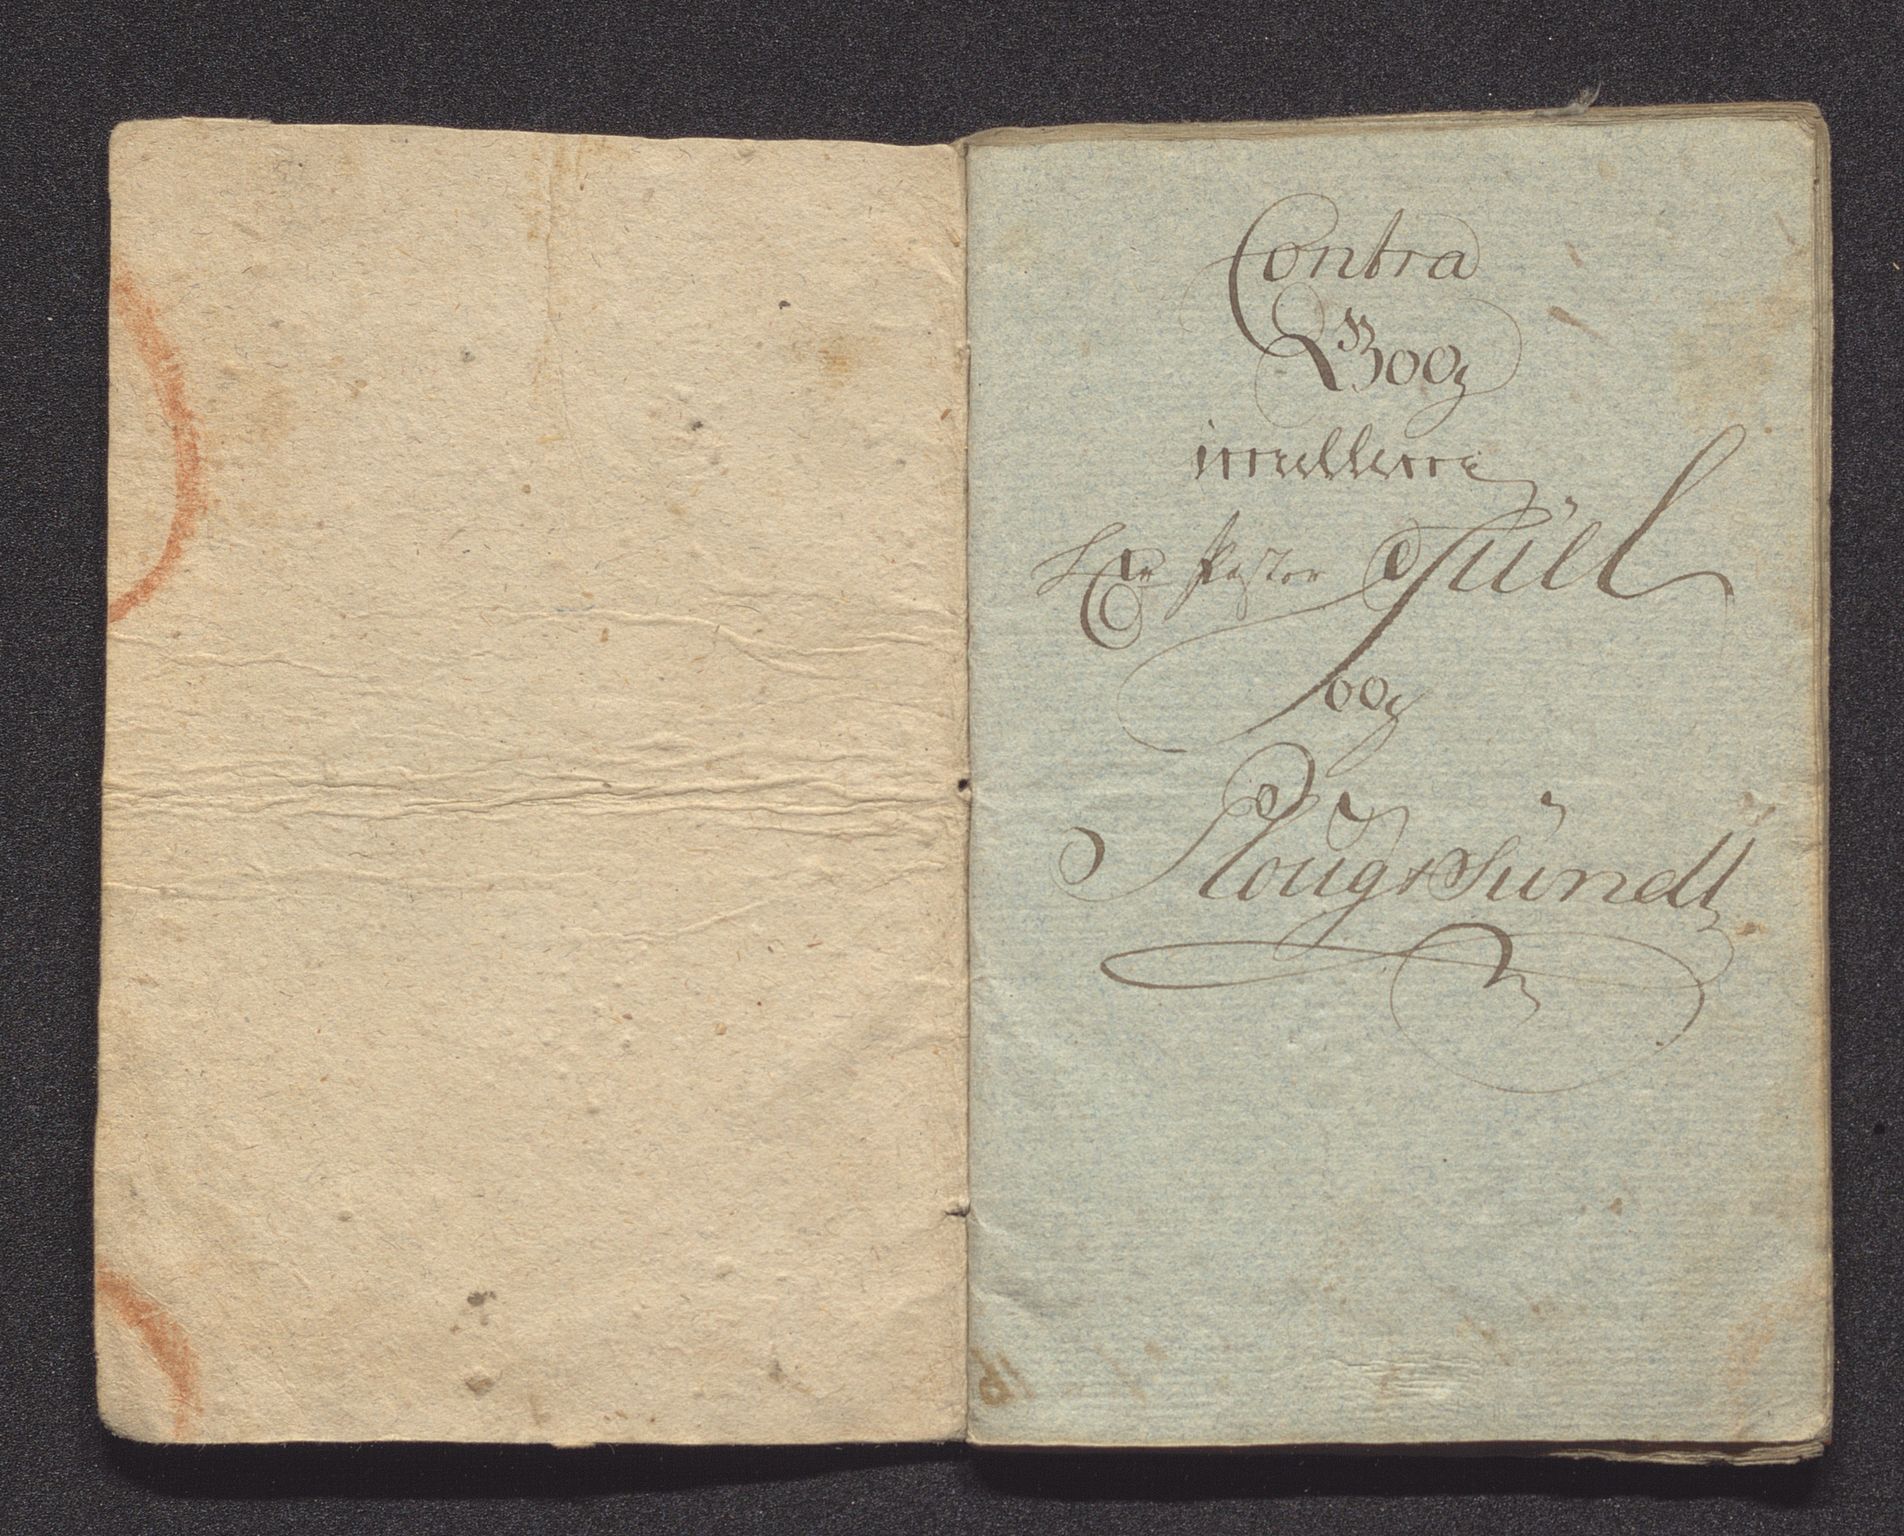 Contra
Boog
imellem
Hr Pastor Juul
oog
Kougsundt